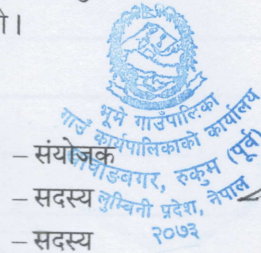 ो ।
भूमे गाउँपालिका
गाउँ कार्यपालिकाको कार्यालय
रुकुम (पूर्व)
लुम्बिनी प्रदेश, नेपाल
२०७३
– संयोजक
– सदस्य
– सदस्य